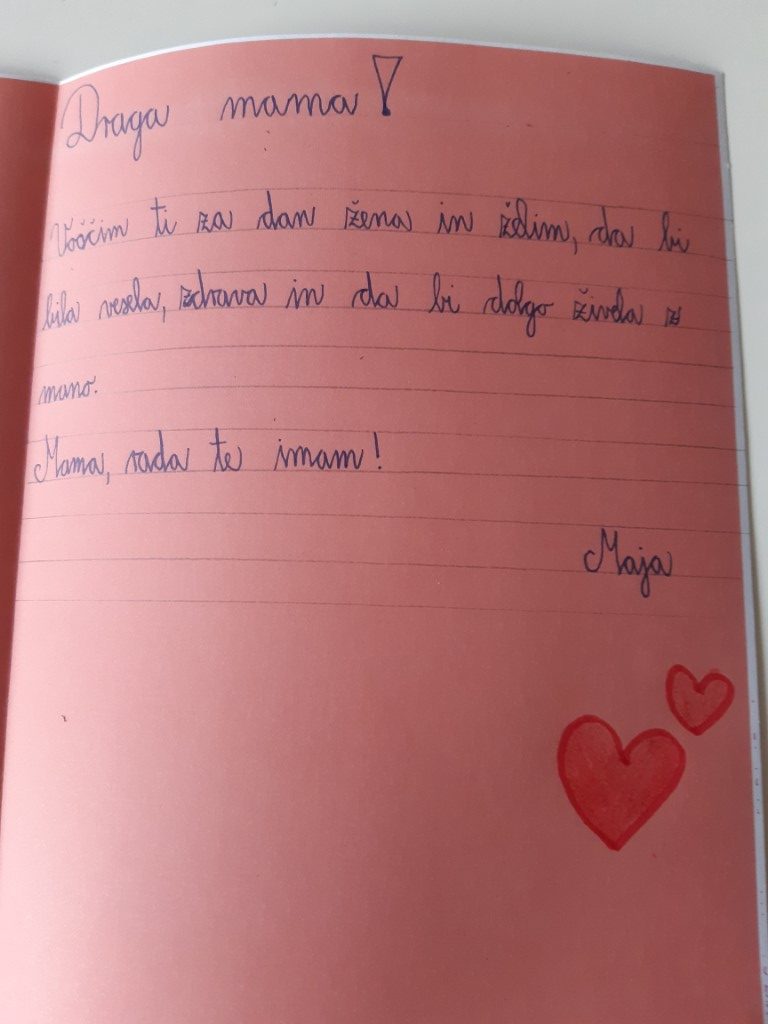 Draga mama!
Voščim ti za dan žena in želim, da bi
bila vesela, zdrava in da bi dolgo živela z
mano.
Mama, rada te imam!
Maja